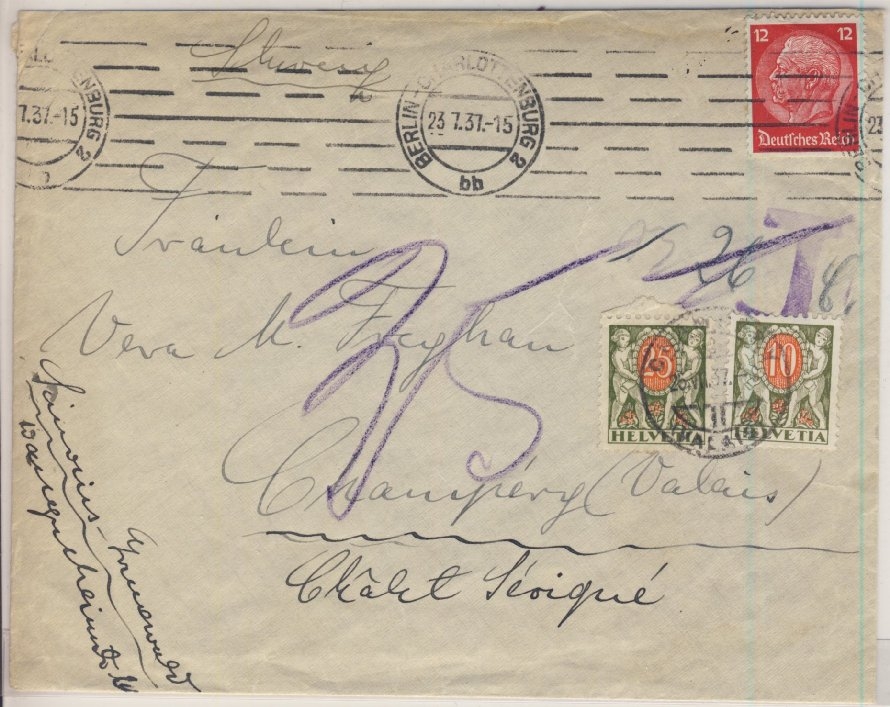 12 12
Deutsches Reich
BERLIN-CHARLOTTENBURG 2
23.7.37.-15
bb
7.37.-15
NBURG 2
Schweiz
Fräulein
Vera M. Feghan
Champéry (Valais)
Châlet Sévigné
35
26
T
25
HELVETIA
10
HELVETIA
Grunewald